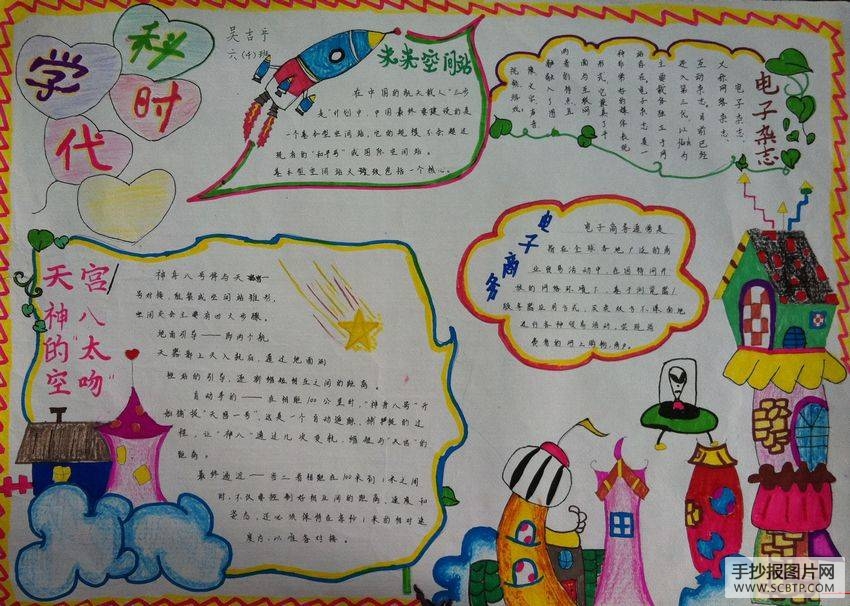 科
学
时
代
吴吉于
六(4)班
未来空间站
在中国的航天载人"三步
走"计划中,中国最终要建设的是
一个基本型空间站,它的规模不会超过
现有的"和平号"或国际空间站。
基本型空间站大致包括一个核心、
电子杂志
电子杂志,
又称网络杂志、
互动杂志。目前已经
进入第三代,以flash为
主要载体独立于网
站存在。电子杂志是一
种非常好的媒体表现
形式,它兼具了平
面与互联网
两者的特点,且
融入了图
像、文字、声音
视频、游戏、
电子商务
电子商务通常是
指在全球各地广泛的商
业贸易活动中,在因特网开
放的网络环境下,基于浏览器/
服务器应用方式,买卖双方不谋面地
进行各种商贸活动,实现消
费者的网上购物,商户。
天宫
神八
的太
空吻"
神舟八号将与天宫一
号对接,组装成空间站雏形,
空间交会主要有四大步骤。
地面引导——即两个航
天器都上天入轨后,通过地面测
控站的引导,逐渐缩短相互之间的距离。
自动寻的——在相距100公里时,"神舟八号"开
始捕捉"天宫一号",这是一个自动追踪、捕捉的过
程,让"神八"通过几次变轨,缩短与"天宫"的
距离。
最终逼近——当二者相距在100米到1米之间
时,不仅要控制好相互间的距离、速度和
姿态,还必须保持在每秒1米的相对速
度内,以准备对接。
手抄报图片网
WWW.SCBTP.COM